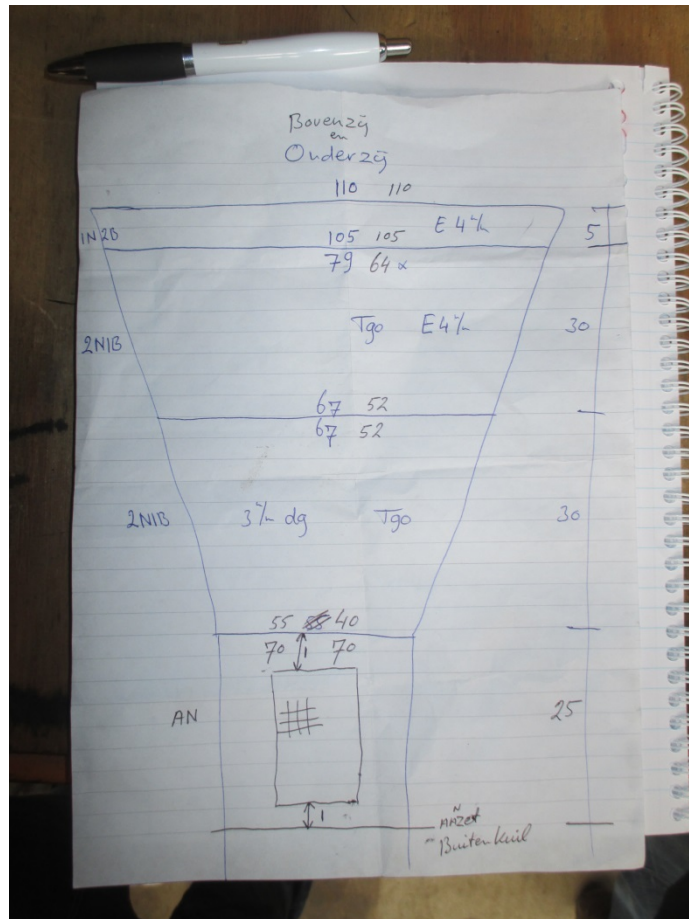 Bovenzij
en
Onderzij
110 110
1N2B 105 105 E 4 ‰ 5
79 64 x
2N1B Tgo E 4 ‰ 30
67 52
67 52
2N1B 3 ‰ dg Tgo 30
55 40
70 1 70
AN 25
1
Buitenkuil